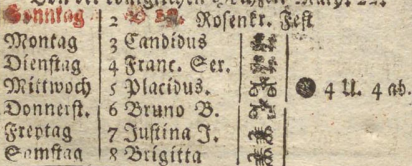 Sonntag 2 Rosenkr. Fest
Montag 3 Candidus
Dienstag 4 Franc. Ser.
Mittwoch 5 Placidus. 4 U. 4 ab.
Donnerst. 6 Bruno B.
Freytag 7 Justina J.
Samstag 8 Brigitta